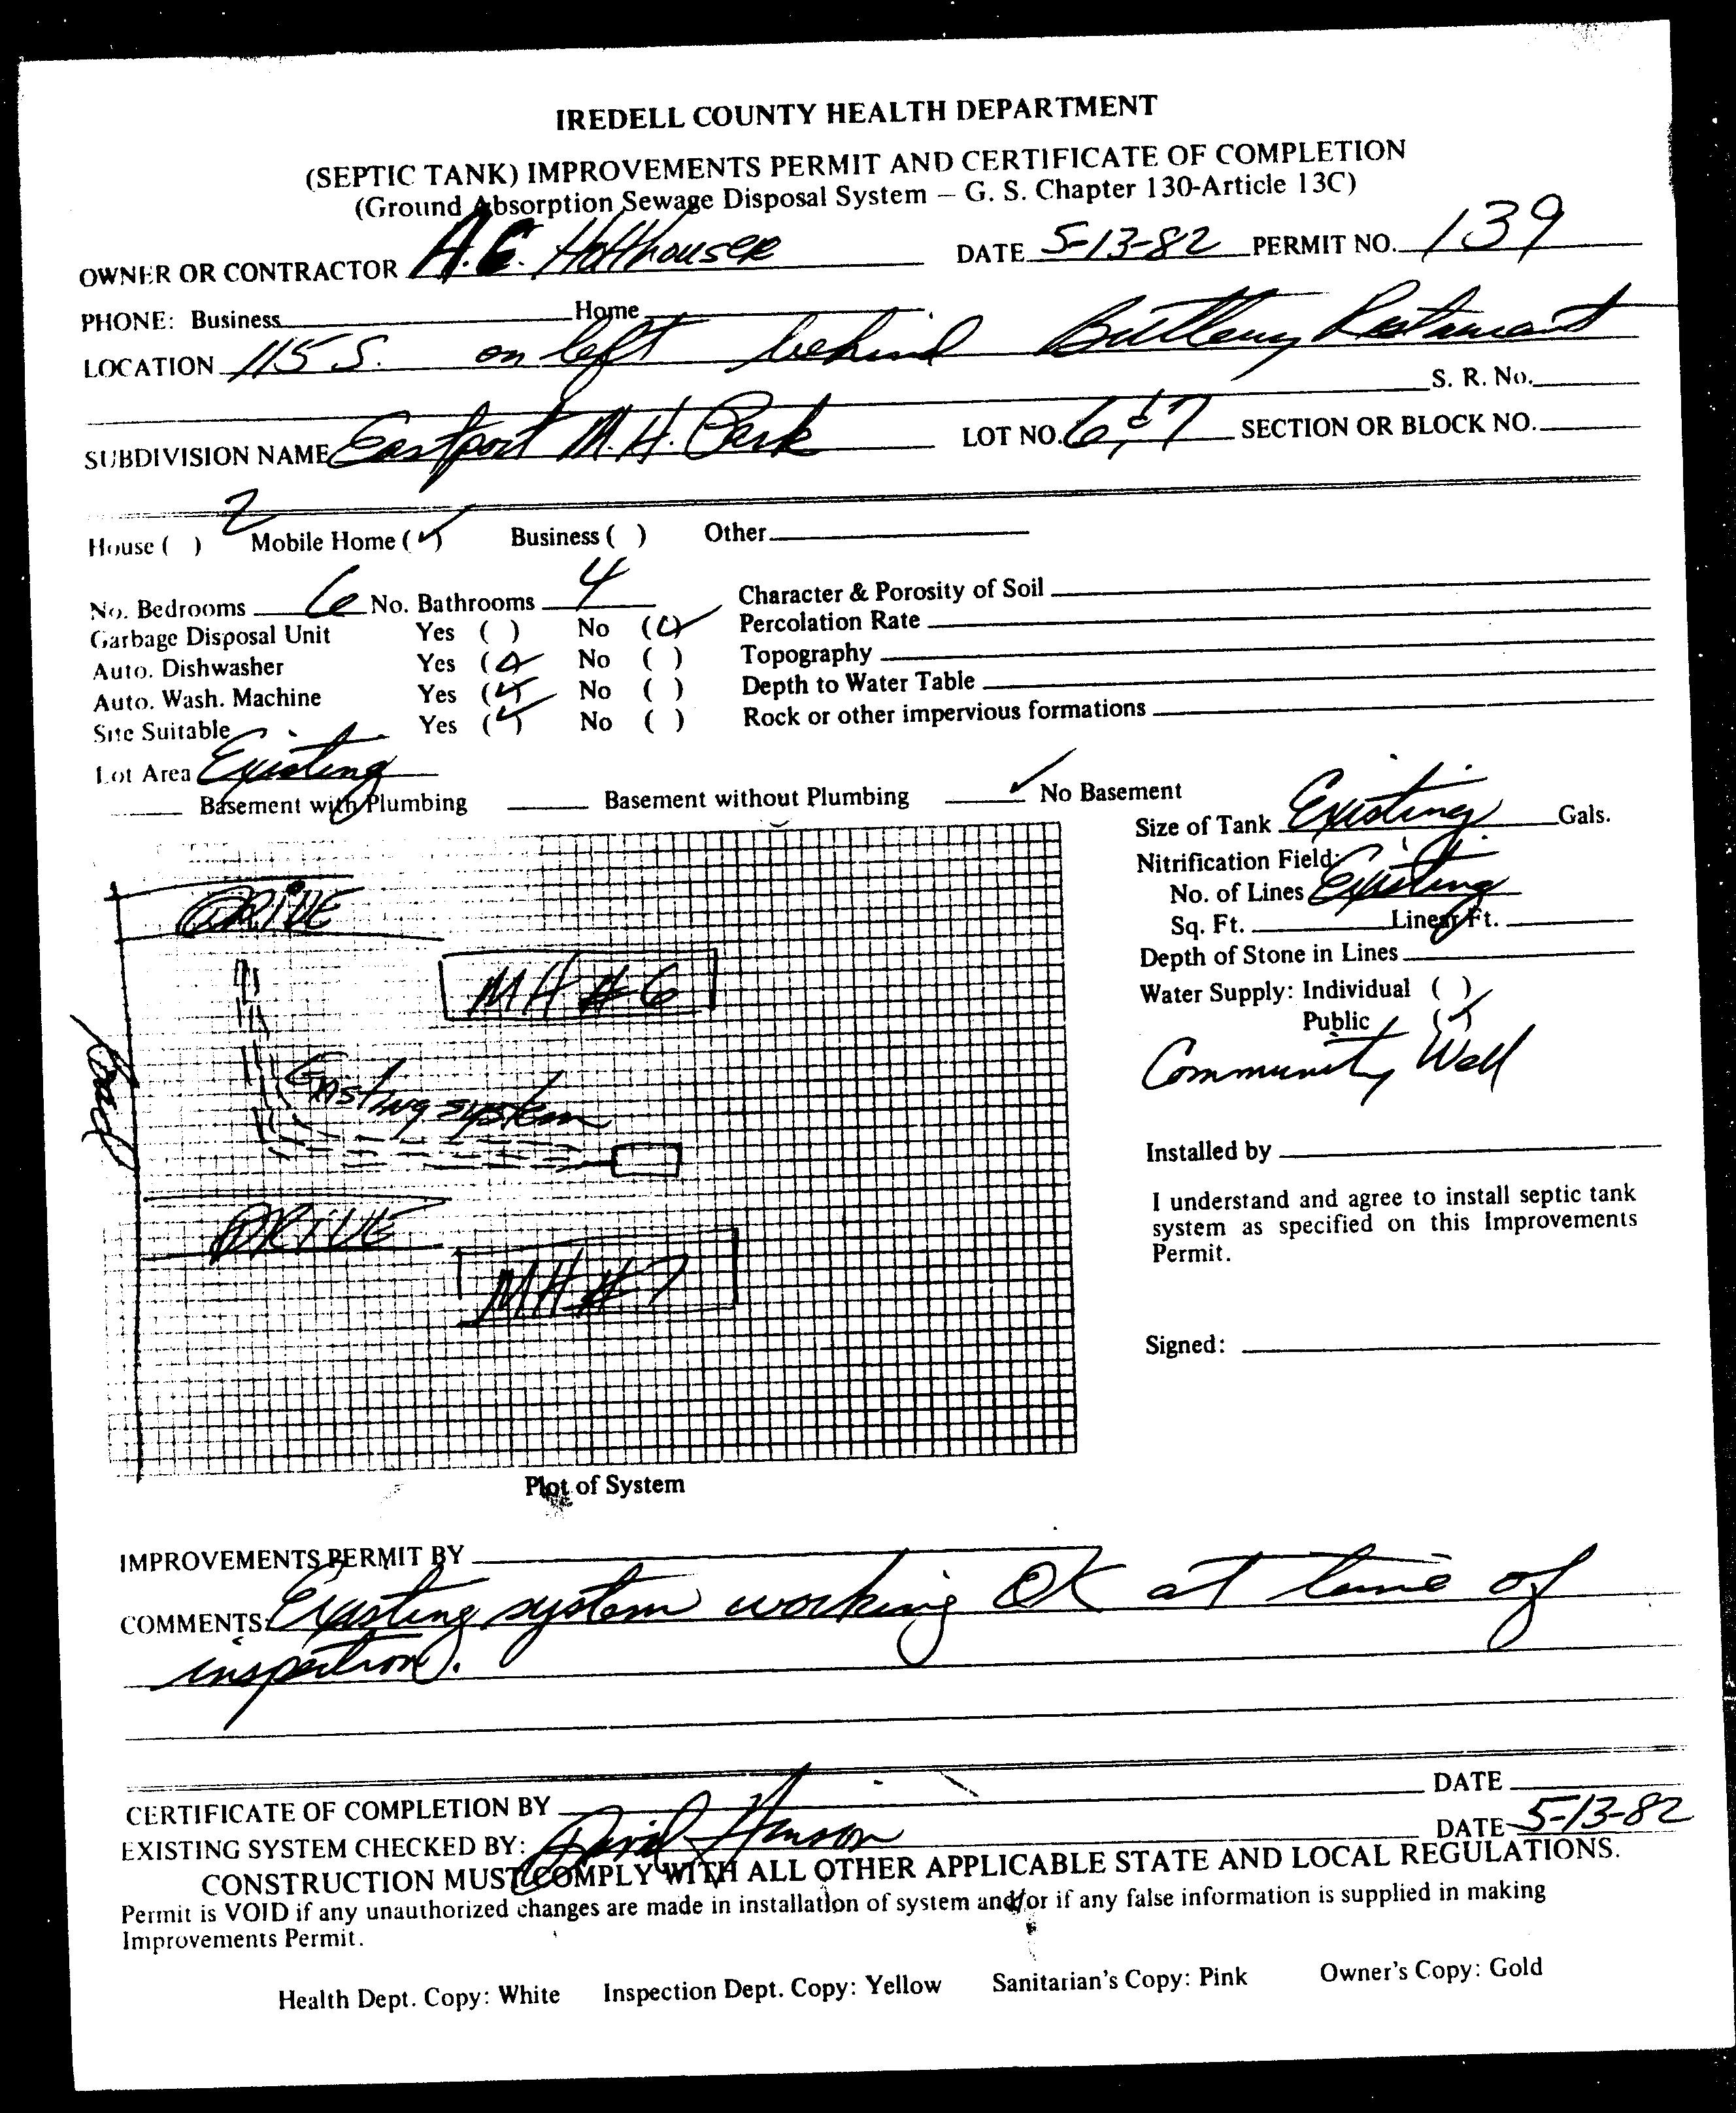 IREDELL COUNTY HEALTH DEPARTMENT
(SEPTIC TANK) IMPROVEMENTS PERMIT AND CERTIFICATE OF COMPLETION
(Ground Absorption Sewage Disposal System – G. S. Chapter 130-Article 13C)
OWNER OR CONTRACTOR A.C. Holthouser DATE 5-13-82 PERMIT NO. 139
PHONE: Business Home
LOCATION 115 S. on left behind Restaurant
S. R. No.
SUBDIVISION NAME Eastport M.H. Park LOT NO. 6 & 7 SECTION OR BLOCK NO.
2
House ( ) Mobile Home (✓) Business ( ) Other
No. Bedrooms 6 No. Bathrooms 4 Character & Porosity of Soil
Garbage Disposal Unit Yes ( ) No (✓) Percolation Rate
Auto. Dishwasher Yes (✓) No ( ) Topography
Auto. Wash. Machine Yes (✓) No ( ) Depth to Water Table
Site Suitable Yes (✓) No ( ) Rock or other impervious formations
Lot Area Existing
Basement with Plumbing Basement without Plumbing ✓ No Basement
Size of Tank Existing Gals.
Nitrification Field:
No. of Lines Existing
Sq. Ft. Linear Ft.
Depth of Stone in Lines
Water Supply: Individual ( )
Public (✓)
Community Well
Installed by
I understand and agree to install septic tank
system as specified on this Improvements
Permit.
Signed:
DRIVE
MH #6
Road
Existing system
DRIVE
MH #7
Plot of System
IMPROVEMENTS PERMIT BY
COMMENTS: Existing system working OK at time of
inspection.
CERTIFICATE OF COMPLETION BY DATE
EXISTING SYSTEM CHECKED BY: David Henson DATE 5-13-82
CONSTRUCTION MUST COMPLY WITH ALL OTHER APPLICABLE STATE AND LOCAL REGULATIONS.
Permit is VOID if any unauthorized changes are made in installation of system and/or if any false information is supplied in making
Improvements Permit.
Health Dept. Copy: White Inspection Dept. Copy: Yellow Sanitarian's Copy: Pink Owner's Copy: Gold